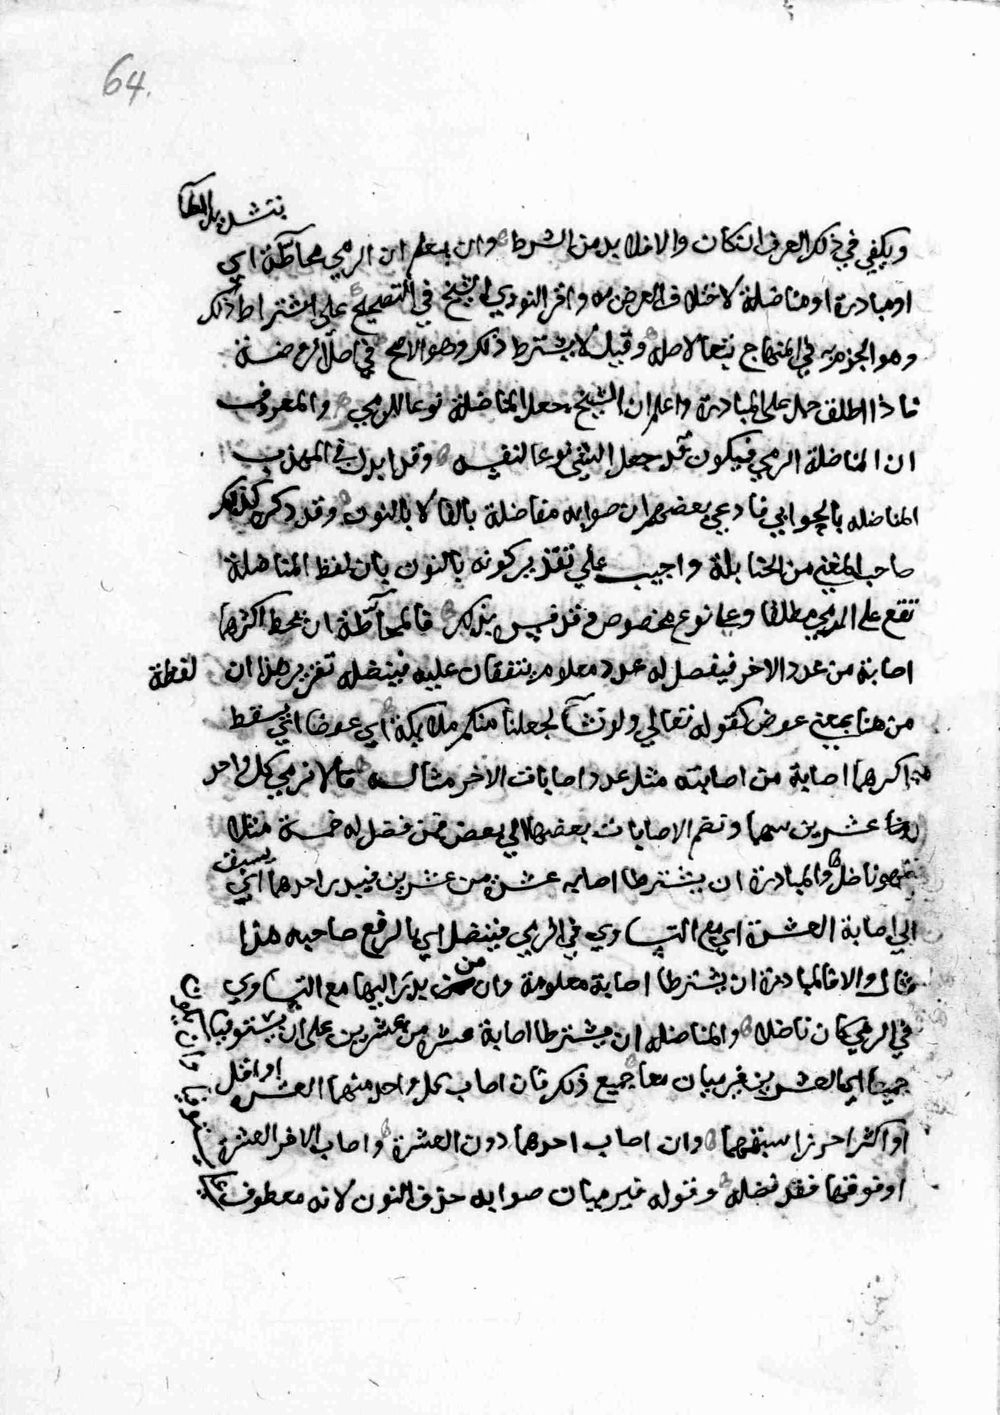 64.
بتشديد الطا
ويكفي في ذلك العرف ان كان والا فلا بد من الشرط وان يعلم ان الرمي محاطّة اي
او مبادرة او مناضلة لاختلاف الغرض واقر النووي الشيخ في التصحيح على اشتراط ذلك
وهو المجزوم به في المنهاج تبعا لاصله وقيل لا يشترط ذلك وهو الاصح في اصل الروضة
فاذا اطلق حمل على المبادرة واعلم ان الشيخ جعل المناضلة نوعا للرمي والمعروف
ان المناضلة الرمي فيكون قد جعل الشي نوعا لنفسه وقد ابدل في المهذب
المناضله بالحوابي فادعي بعضهم ان صوابه مفاضلة بالفا لا بالنون وقد ذكر كذلك
صاحب المغني من الحنابلة واجيب علي تقدير كونه بالنون بان لفظ المناضلة
تقع على الرمي مطلقا وعلى نوع مخصوص وقد فسر بذلك فالمحاطّة ان يحط اكثرهما
اصابة من عدد الاخر فيفضل له عدد معلوم يتفقان عليه فينضله تقرير هذا ان لفظة
من هنا بمعني عوض كقوله تعالي ولو نشآ لجعلنا منكم ملايكة اي عوضا اي يسقط
اكثرهما اصابة من اصابته مثل عدد اصابات الاخر مثاله قالا نرمي كل واحد
منا عشرين سهما ونضم الاصابات بعضها الي بعض فمن فضل له خمسة مثلا
فهو ناضل والمبادرة ان يشترطا اصابه عشرة من عشرين فيبدر احدهما اي يسبق
الي اصابة العشرة اي مع التساوي في الرمي فينضل اي بالرفع صاحبه هذا
مثال والا فالمبادرة ان يشترطا اصابة معلومة وان من بدر اليها مع التساوي
في الرمي كان ناضلا والمناضله ان يشترطا اصابة عشرة من عشرين على ان يستوفيا
جميعا اي العشرين فيرميان معا جميع ذلك فان اصاب كل واحد منهما العشرة او اقل
او اكثر احرزا سبقهما وان اصاب احدهما دون العشرة واصاب الاخر العشرة
او فوقها فقد نضله وقوله فيرميان صوابه حذف النون لانه معطوف على